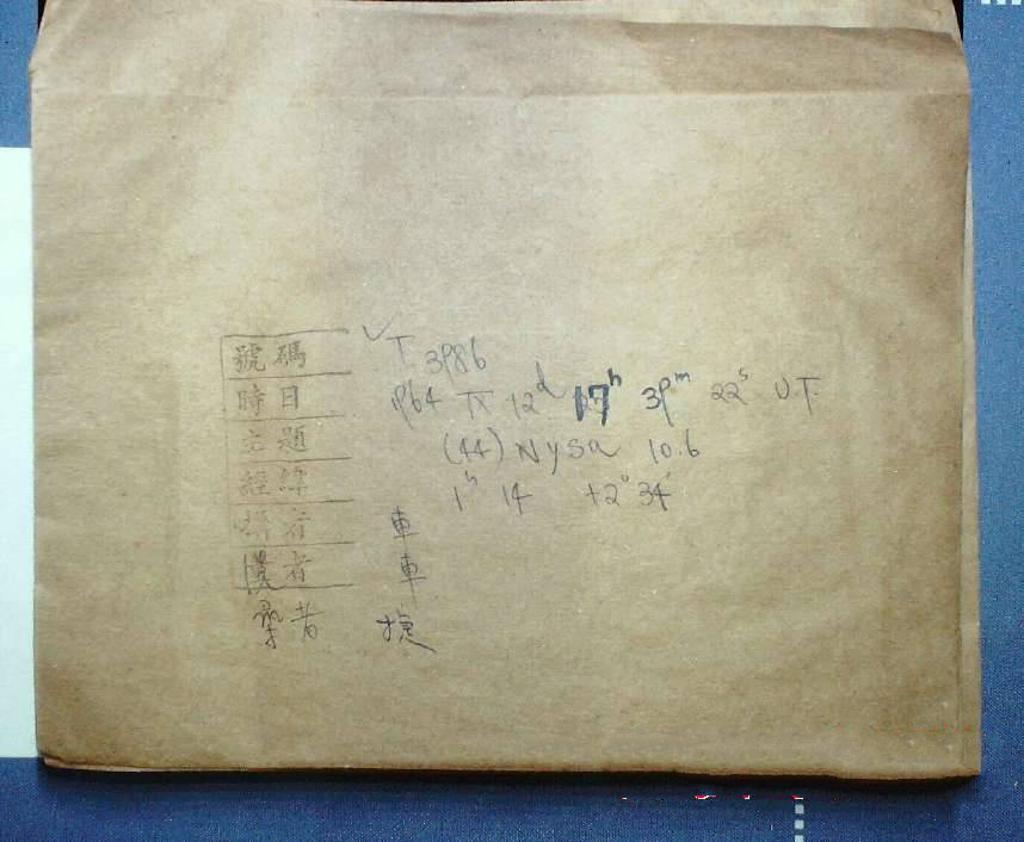 號碼 ✓ T 3986
時日 1964 IX 12ᵈ 17ʰ 39ᵐ 22ˢ U.T.
主題 (44) Nysa 10.6
經緯 1ʰ 14 +2° 34'
攝者 車
者 車
者 捷